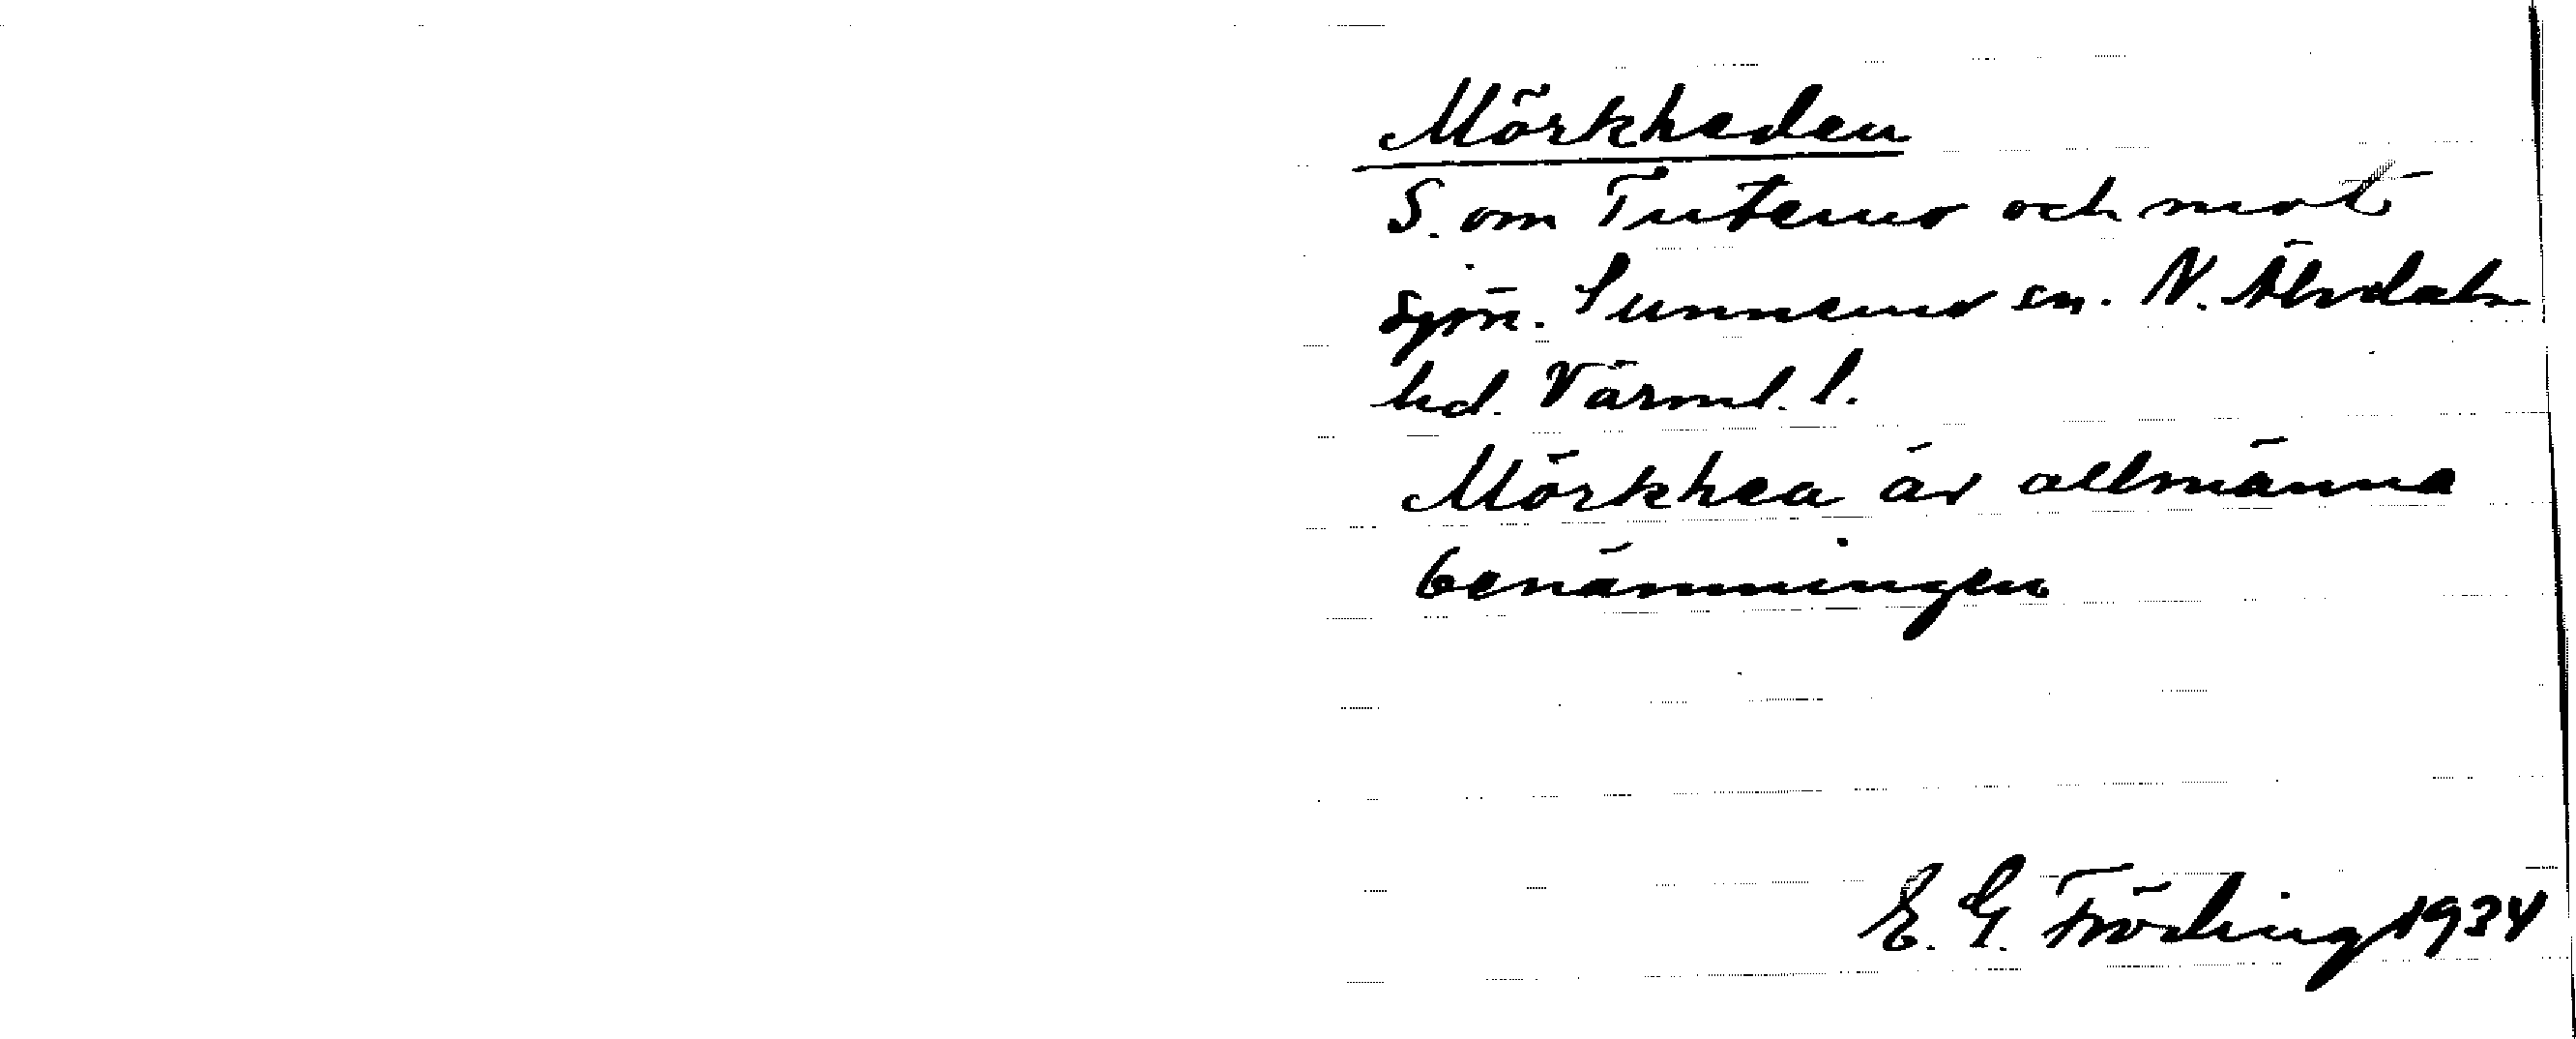 Mörkheden
S. om Tutemo och mot
sjön. Sunnemo sn. N. Älvdals
hd. Värml. l.
Mörkhea är allmänna
benämningen
E. G. Fröding 1934